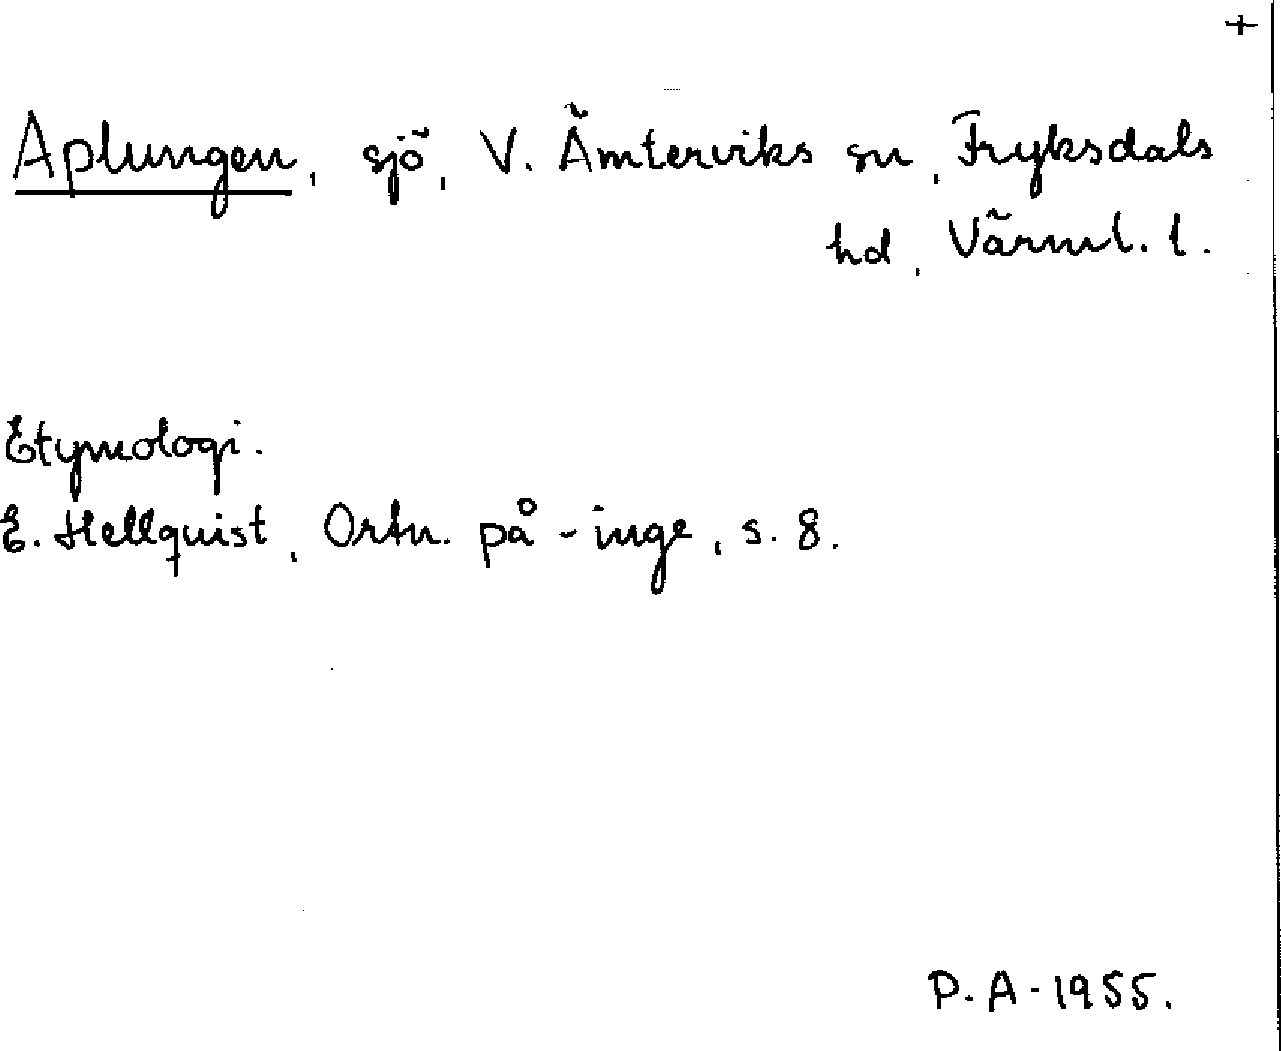 +
Aplungen, sjö, V. Ämterviks sn, Fryksdals
hd, Värml. l.
Etymologi.
E. Hellquist, Ortn. på -inge, s. 8.
P. A. 1955.